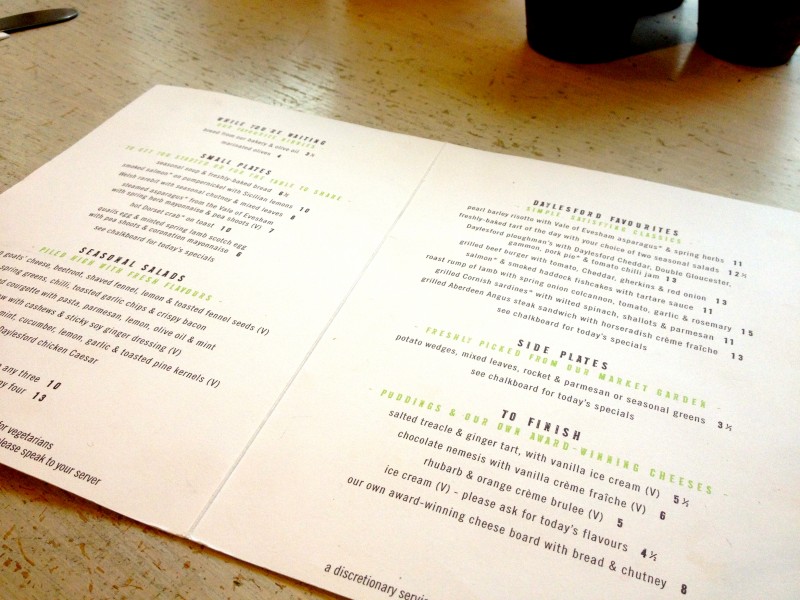 WHILE YOU'RE WAITING
OUR FAVOURITE NIBBLES
bread from our bakery & olive oil 3½
marinated olives 4
SMALL PLATES
TO GET YOU STARTED OR FOR THE TABLE TO SHARE -
seasonal soup & freshly-baked bread 6½
smoked salmon* on pumpernickel with Sicilian lemons 10
Welsh rarebit with seasonal chutney & mixed leaves 8
steamed asparagus* from the Vale of Evesham
with spring herb mayonnaise & pea shoots (V) 7
hot Dorset crab* on toast 10
quails egg & minted spring lamb scotch egg
with pea shoots & coronation mayonnaise 6
see chalkboard for today's specials
SEASONAL SALADS
- PILED HIGH WITH FRESH FLAVOURS -
goats' cheese, beetroot, shaved fennel, lemon & toasted fennel seeds (V)
spring greens, chilli, toasted garlic chips & crispy bacon
courgette with pasta, parmesan, lemon, olive oil & mint
with cashews & sticky soy ginger dressing (V)
mint, cucumber, lemon, garlic & toasted pine kernels (V)
Daylesford chicken Caesar
any three 10
any four 13
for vegetarians
please speak to your server
DAYLESFORD FAVOURITES
SIMPLE SATISFYING CLASSICS
pearl barley risotto with Vale of Evesham asparagus* & spring herbs 11
freshly-baked tart of the day with your choice of two seasonal salads 12½
Daylesford ploughman's with Daylesford Cheddar, Double Gloucester,
gammon, pork pie* & tomato chilli jam 13
grilled beef burger with tomato, Cheddar, gherkins & red onion 13
salmon* & smoked haddock fishcakes with tartare sauce 11
roast rump of lamb with spring onion colcannon, tomato, garlic & rosemary 15
grilled Cornish sardines* with wilted spinach, shallots & parmesan 11
grilled Aberdeen Angus steak sandwich with horseradish crème fraîche 13
see chalkboard for today's specials
SIDE PLATES
- FRESHLY PICKED FROM OUR MARKET GARDEN -
potato wedges, mixed leaves, rocket & parmesan or seasonal greens 3½
see chalkboard for today's specials
TO FINISH
PUDDINGS & OUR OWN AWARD-WINNING CHEESES
salted treacle & ginger tart, with vanilla ice cream (V) 5½
chocolate nemesis with vanilla crème fraîche (V) 6
rhubarb & orange crème brulee (V) 5
ice cream (V) - please ask for today's flavours 4½
our own award-winning cheese board with bread & chutney 8
a discretionary